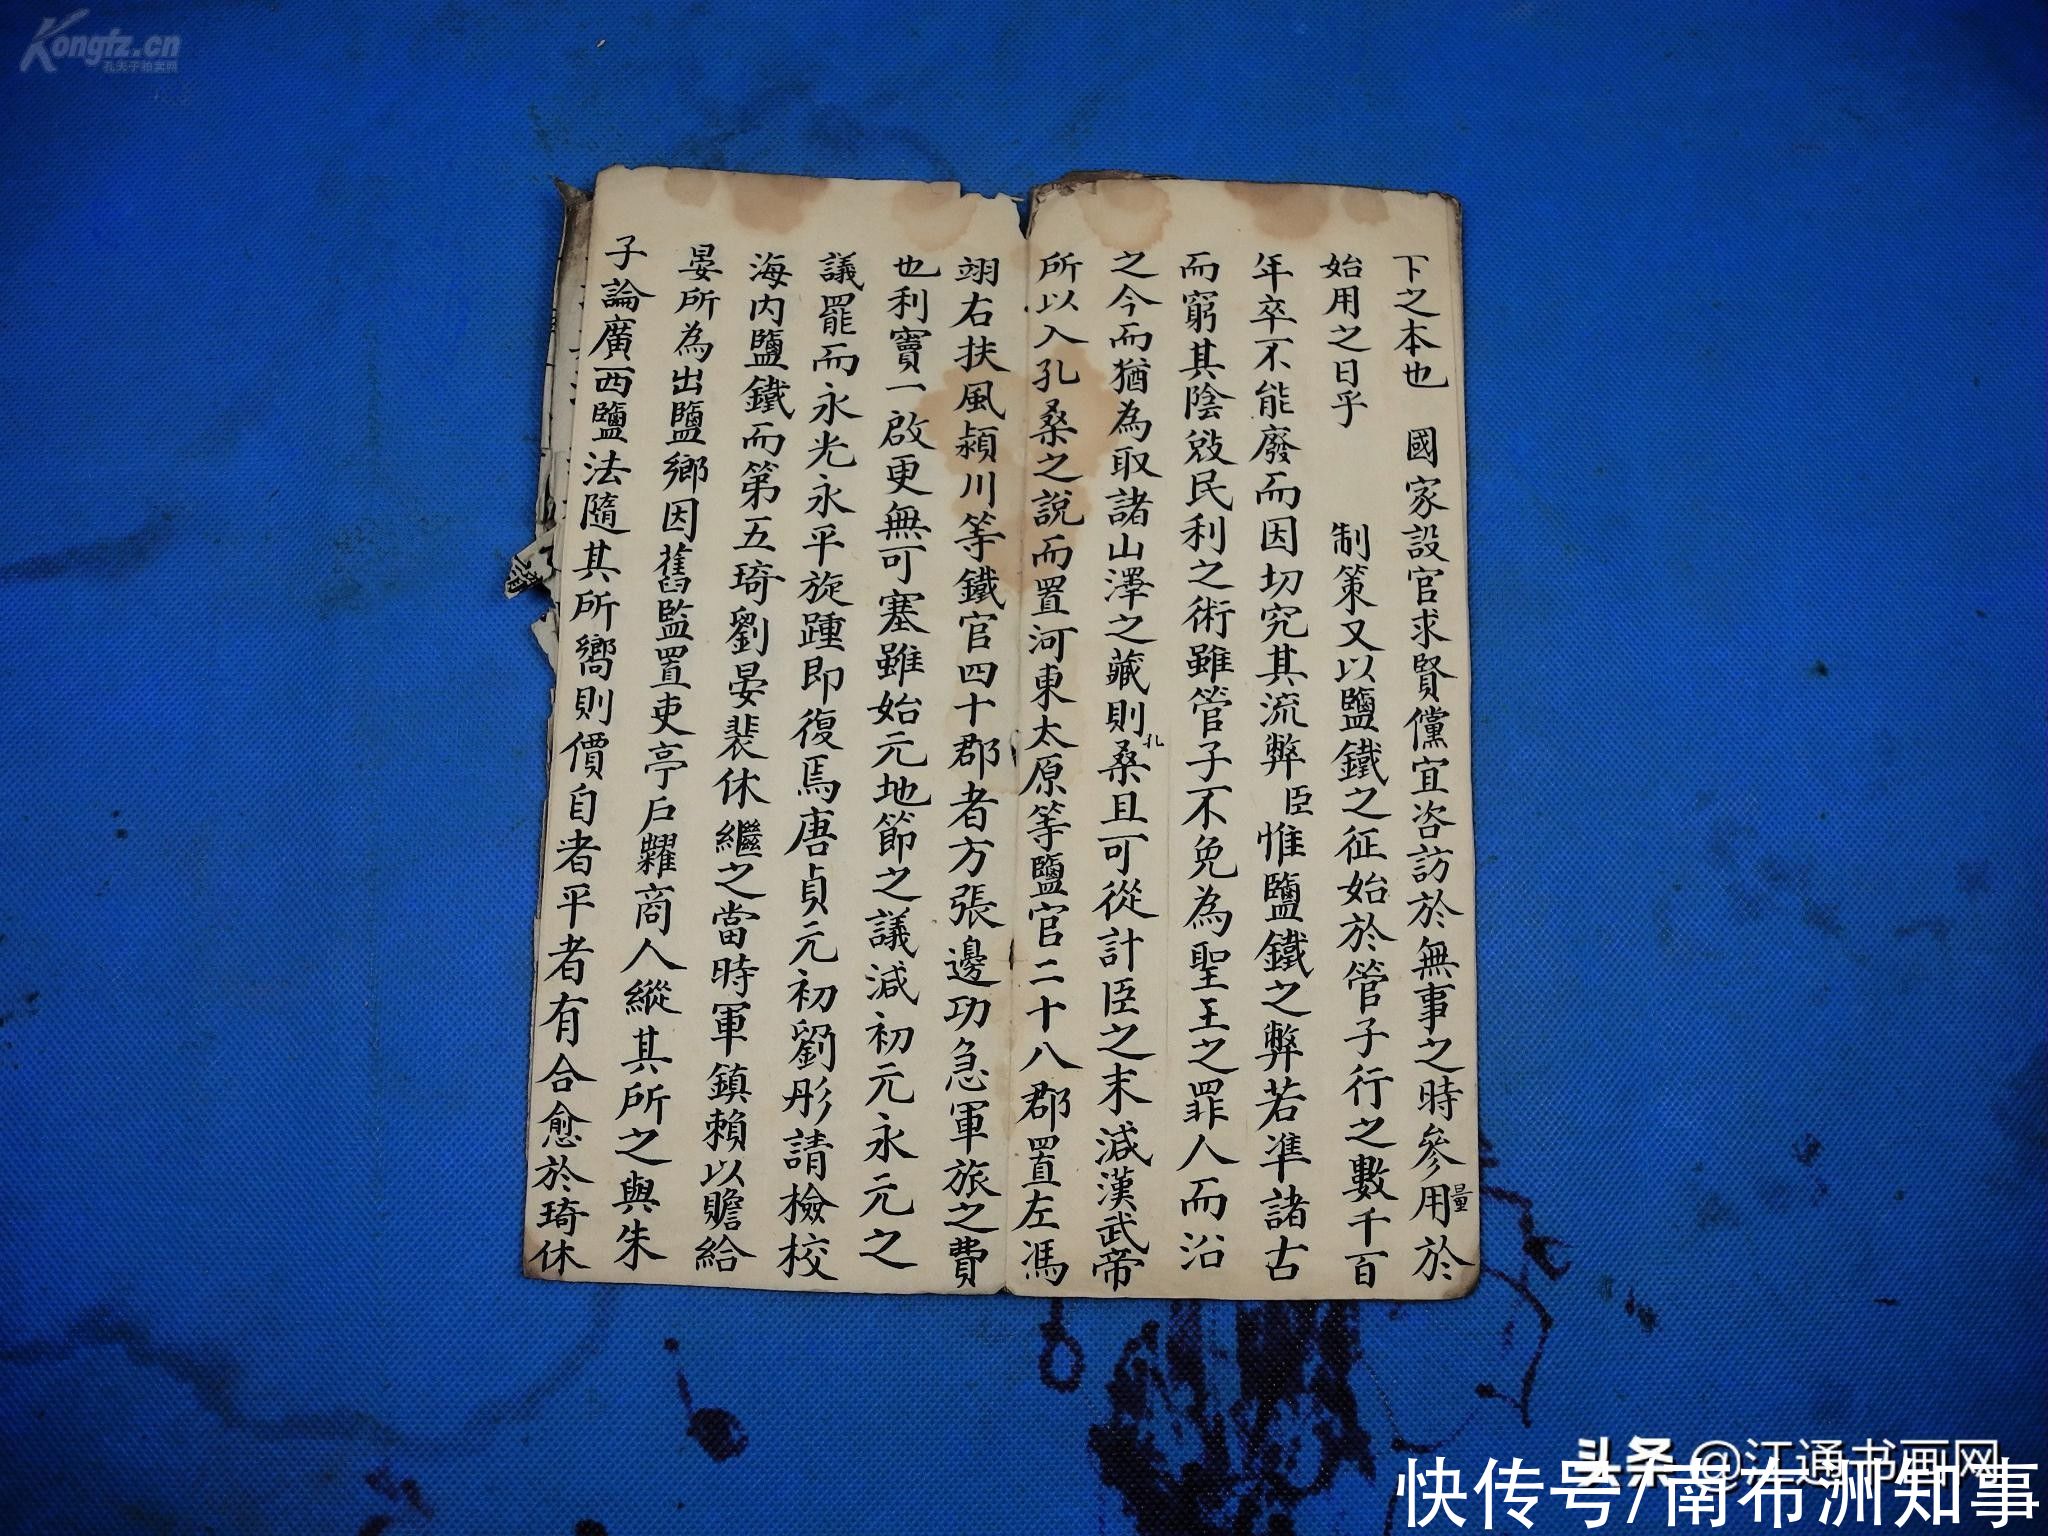 下之本也　國家設官求賢儻宜咨訪於無事之時參用量於
始用之日乎　制策又以鹽鐵之征始於管子行之數千百
年卒不能廢而因切究其流弊臣惟鹽鐵之弊若準諸古
而窮其陰戤民利之術雖管子不免為聖王之罪人而沿
之今而猶為取諸山澤之藏則孔桑且可從計臣之末減漢武帝
所以入孔桑之說而置河東太原等鹽官二十八郡置左馮
翊右扶風潁川等鐵官四十郡者方張邊功急軍旅之費
也利竇一啟更無可塞雖始元地節之議減初元永元之
議罷而永光永平旋踵即復焉唐貞元初劉彤請檢校
海內鹽鐵而第五琦劉晏裴休繼之當時軍鎮賴以贍給
晏所為出鹽鄉因舊監置吏亭戶糶商人縱其所之與朱
子論廣西鹽法隨其所嚮則價自者平者有合愈於琦休
Kongfz.cn
孔夫子拍卖网
头条 @江通书画网
快传号/南布洲知事